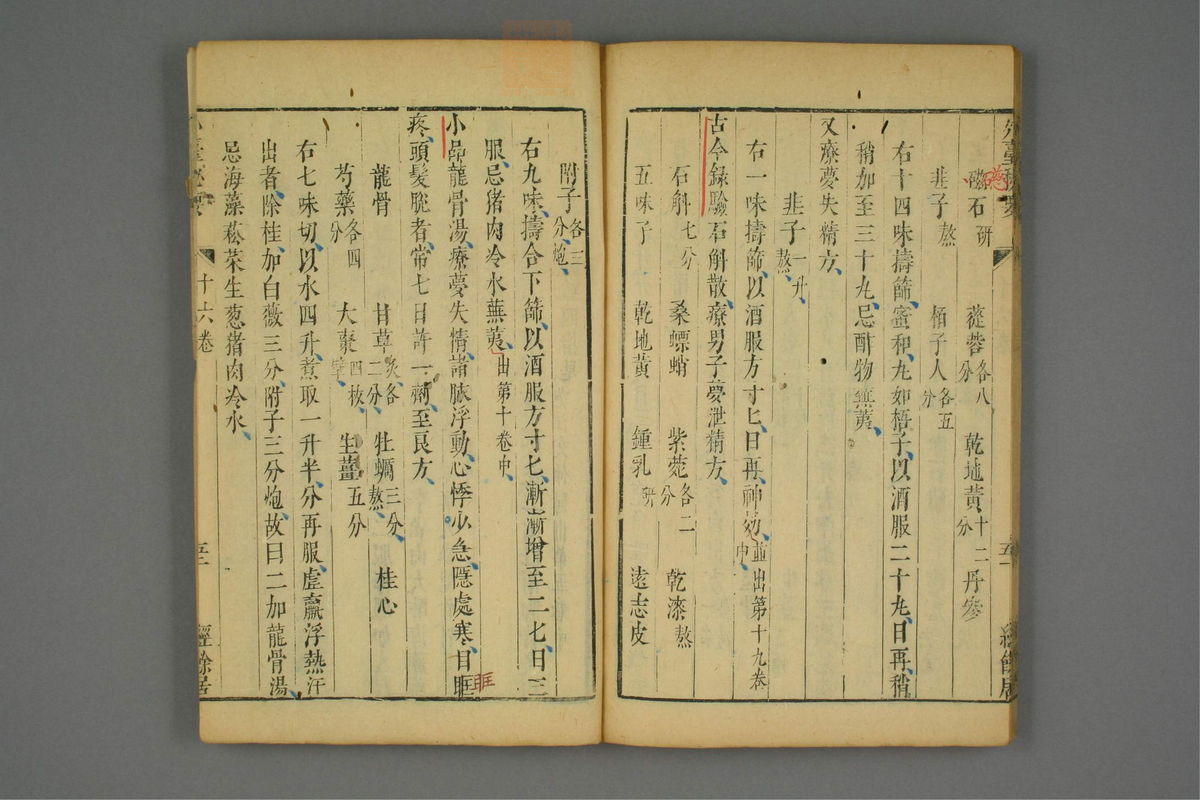 磁石研 蓯蓉各八分 乾地黃十二分 丹參
韭子熬 栢子人各五分
右十四味擣篩蜜和丸如梧子以酒服二十丸日再稍
稍加至三十丸忌酢物蕪荑
又療夢失精方
韭子一升熬
右一味擣篩以酒服方寸匕日再神効並出第十九卷中
古今録驗石斛散療男子夢泄精方
石斛七分 桑螵蛸 紫菀各二分 乾漆熬
五味子 乾地黃 鍾乳研 遠志皮
附子各三分炮
右九味擣合下篩以酒服方寸匕漸漸增至二七日三
服忌猪肉冷水蕪荑出第十卷中
小品龍骨湯療夢失精諸脉浮動心悸少急隱處寒目眶
疼頭髮脫者常七日許一劑至良方
龍骨 甘草炙各二分 牡蠣三分熬 桂心
芍藥各四分 大棗四枚擘 生薑五分
右七味切以水四升煮取一升半分再服虛羸浮熱汗
出者除桂加白薇三分附子三分炮故曰二加龍骨湯
忌海藻菘菜生葱猪肉冷水
十六卷 五二 經餘居